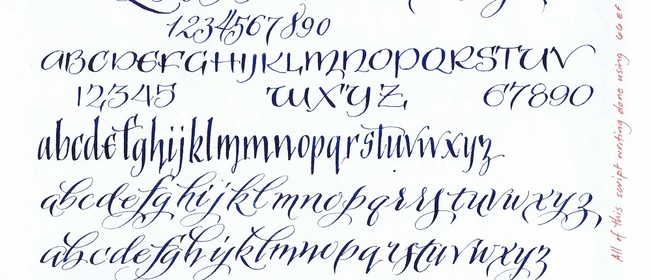 1234567890
ABCDEFGHIJKLMNOPQRSTUV
12345 WXYZ 67890
abcdefghijklmmnopqrstuvwxyz
abcdefghijklmnopqrrstuvwxyz
abcdefghijklmnopqrstuvwxyz
All of this script writing done using GG EF